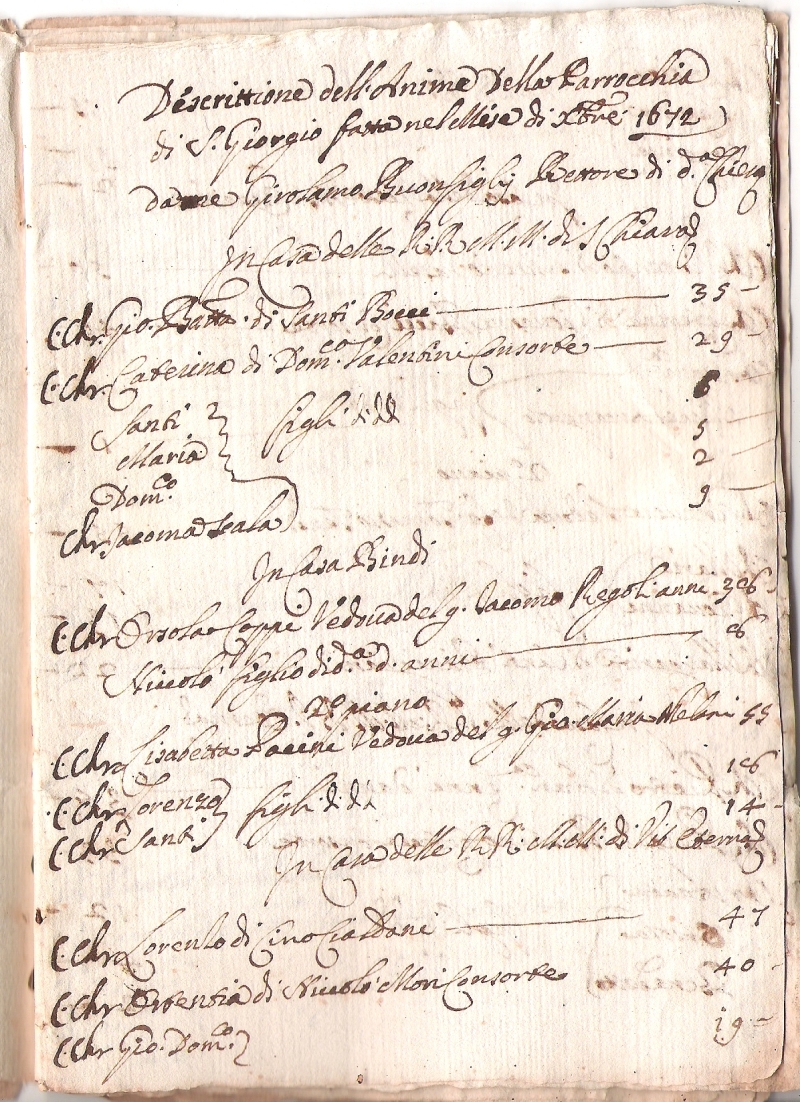 Descrittione dell'Anime della Parrocchia
di S. Giorgio fatta nel Mese di Xbre 1672
da me Girolamo Buonsiglj Rettore di d.a Chiesa
In Casa delle R.R. M.M. di S. Chiara
C. Chr. Gio. Batta. di Santi Bocci 35
C. Chr. Caterina di Dom.co Valentini Consorte 29
Santi } figli di dd 6
Maria 5
Dom.co 2
Chr. Jacoma Scala 9
In Casa Bindi
C. Chr Orsola Coppi Vedova del q. Jacomo Regoli anni 36
Niccolò figlio di d.a d. anni 6
2.o piano
C. Chr Lisabetta Pacini Vedova del q. Gio. Maria 55
C. Chr Lorenzo } figli di dd 16
C. Chr Santi 14
In Casa delle R.R. M.M. di Vit'Eterna
C. Chr Lorenzo di Cino 47
C. Chr Ortentia di Niccolò Mori Consorte 40
C. Chr Gio. Dom.co 19